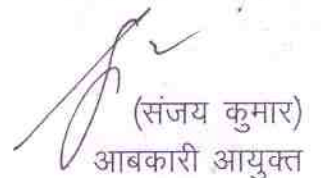 (संजय कुमार)
आबकारी आयुक्त